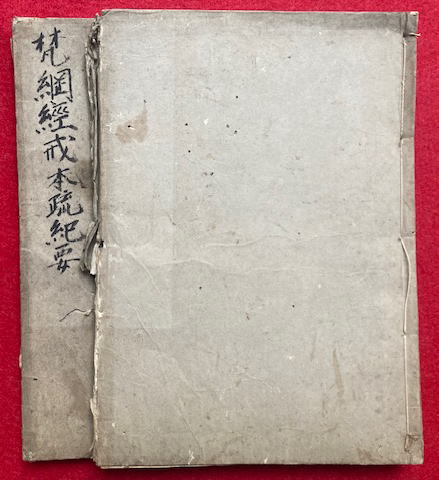 梵網經戒本疏紀要